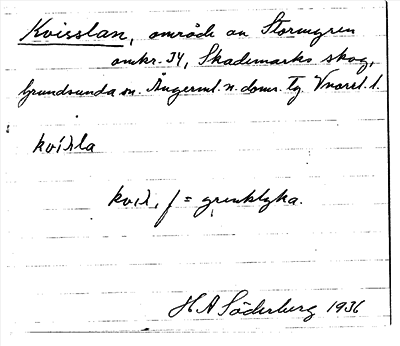 Kvisslan, område av Stormyren
omkr. 34, Skademarks skog,
Grundsunda sn. Ångerml. n. doms. tg. V norrl. l.
kvíʂla
kvıʂ, f = grenklyka.
H A Söderberg 1936